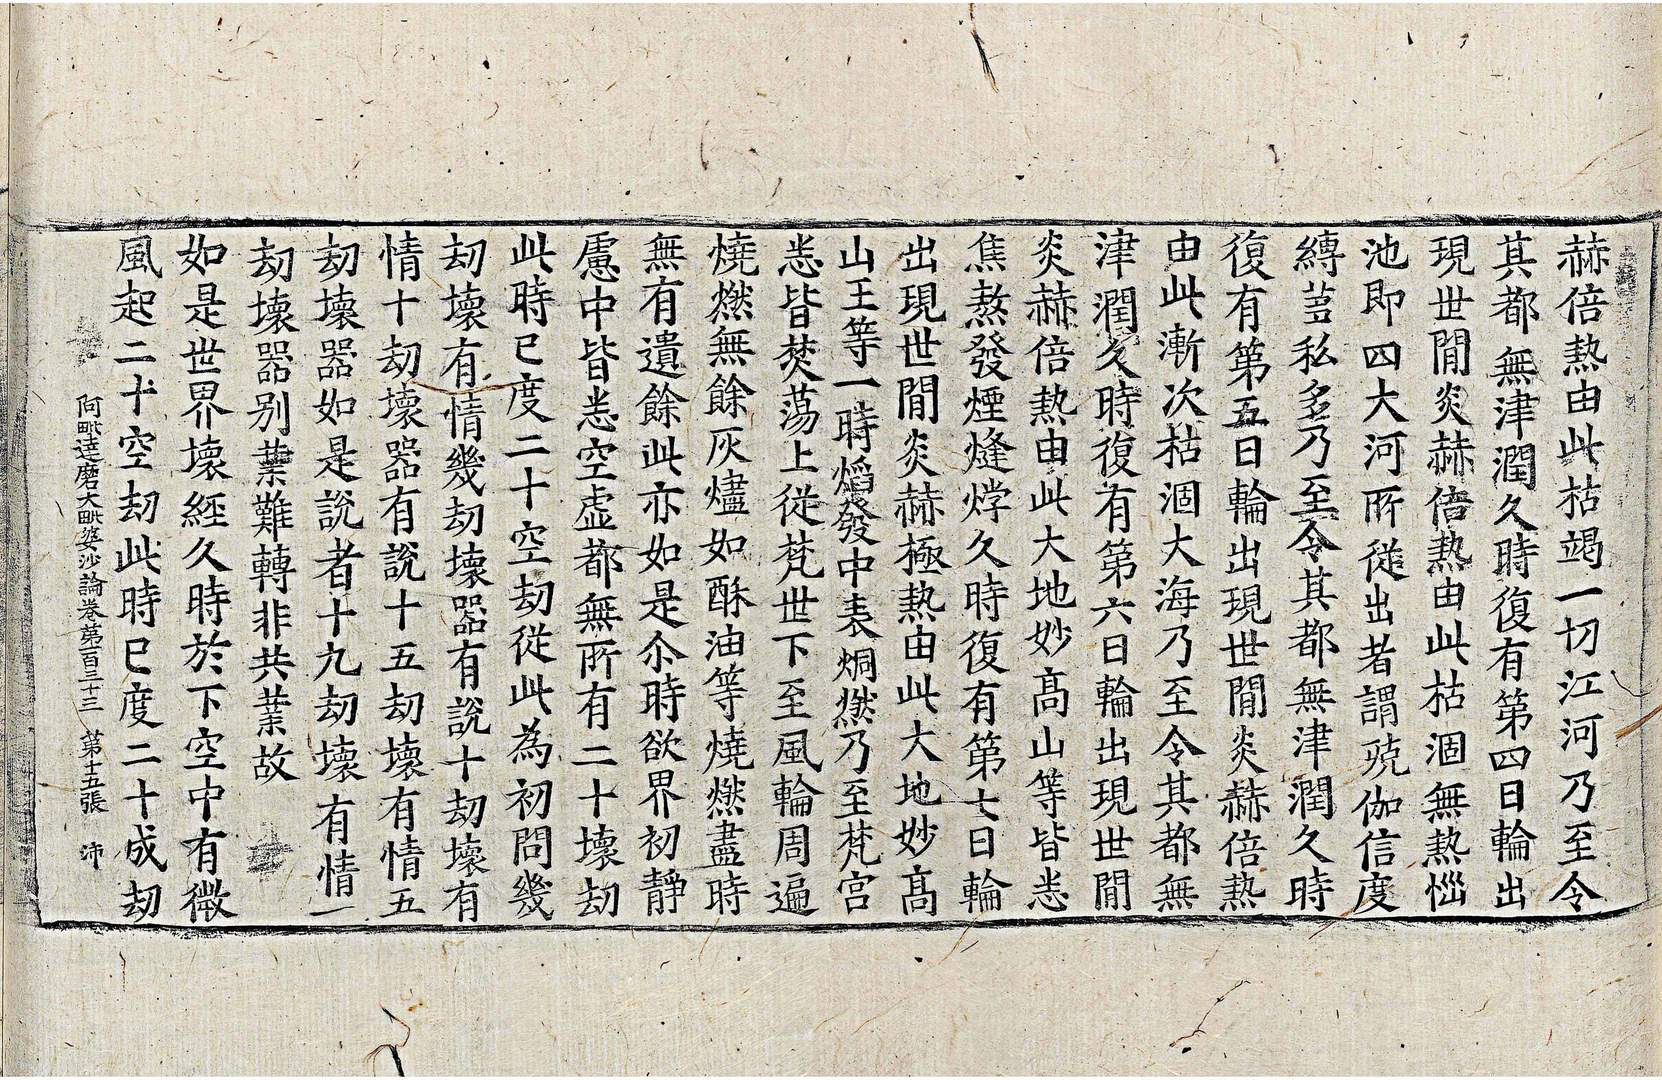 赫倍熱由此枯竭一切江河乃至令
其都無津潤久時復有第四日輪出
現世間炎赫倍熱由此枯涸無熱惱
池即四大河所從出者謂殑伽信度
縛芻私多乃至令其都無津潤久時
復有第五日輪出現世間炎赫倍熱
由此漸次枯涸大海乃至令其都無
津潤久時復有第六日輪出現世間
炎赫倍熱由此大地妙高山等皆悉
焦熬發煙熢㶿久時復有第七日輪
出現世間炎赫極熱由此大地妙高
山王等一時焰發中表烱燃乃至梵宮
悉皆焚蕩上從梵世下至風輪周遍
燒燃無餘灰燼如酥油等燒燃盡時
無有遺餘此亦如是尒時欲界初靜
慮中皆悉空虛都無所有二十壞劫
此時已度二十空劫從此為初問幾
劫壞有情幾劫壞器有說十劫壞有
情十劫壞器有說十五劫壞有情五
劫壞器如是說者十九劫壞有情一
劫壞器別業難轉非共業故
如是世界壞經久時於下空中有微
風起二十空劫此時已度二十成劫
阿毗達磨大毗婆沙論卷第百三十三 第十五張 沛